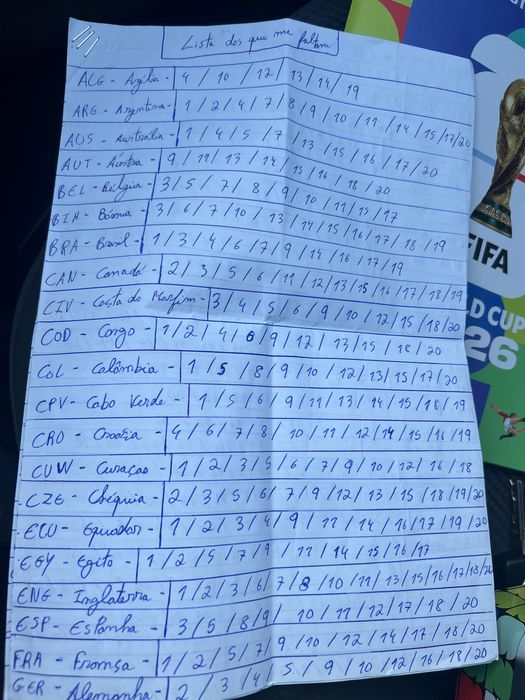 Lista dos que me faltam
ALG - Argélia - 4 / 10 / 12 / 13 / 14 / 19
ARG - Argentina - 1 / 2 / 4 / 7 / 8 / 9 / 10 / 11 / 14 / 15 / 17 / 20
AUS - Austrália - 1 / 4 / 5 / 7 / 13 / 15 / 16 / 17 / 20
AUT - Áustria - 9 / 11 / 13 / 14 / 15 / 16 / 18 / 20
BEL - Bélgica - 3 / 5 / 7 / 8 / 9 / 10 / 11 / 15 / 17
BIH - Bósnia - 3 / 6 / 7 / 10 / 13 / 14 / 15 / 16 / 17 / 18 / 19
BRA - Brasil - 1 / 3 / 4 / 6 / 7 / 9 / 14 / 16 / 17 / 19
CAN - Canadá - 2 / 3 / 5 / 6 / 11 / 12 / 13 / 15 / 16 / 17 / 18 / 19
CIV - Costa do Marfim - 3 / 4 / 5 / 6 / 9 / 10 / 12 / 15 / 18 / 20
COD - Congo - 1 / 2 / 4 / 6 / 9 / 12 / 13 / 15 / 18 / 20
COL - Colômbia - 1 / 5 / 8 / 9 / 10 / 12 / 13 / 15 / 17 / 20
CPV - Cabo Verde - 1 / 5 / 6 / 9 / 11 / 13 / 14 / 15 / 18 / 19
CRO - Croatia - 4 / 6 / 7 / 8 / 10 / 11 / 12 / 14 / 15 / 16 / 19
CUW - Curaçao - 1 / 2 / 3 / 5 / 6 / 7 / 9 / 10 / 12 / 16 / 18
CZE - Chéquia - 2 / 3 / 5 / 6 / 7 / 9 / 12 / 13 / 15 / 18 / 19 / 20
ECU - Equador - 1 / 2 / 3 / 4 / 9 / 11 / 14 / 16 / 17 / 19 / 20
EGY - Egito - 1 / 2 / 5 / 7 / 9 / 11 / 14 / 15 / 16 / 17
ENG - Inglaterra - 1 / 2 / 3 / 6 / 7 / 8 / 10 / 11 / 13 / 15 / 16 / 17 / 18 / 20
ESP - Espanha - 3 / 5 / 8 / 9 / 10 / 11 / 12 / 17 / 18 / 20
FRA - França - 1 / 2 / 5 / 7 / 9 / 10 / 12 / 14 / 17 / 18 / 20
GER - Alemanha - 2 / 3 / 4 / 5 / 9 / 10 / 12 / 16 / 18 / 20
FIFA
LD CUP
26